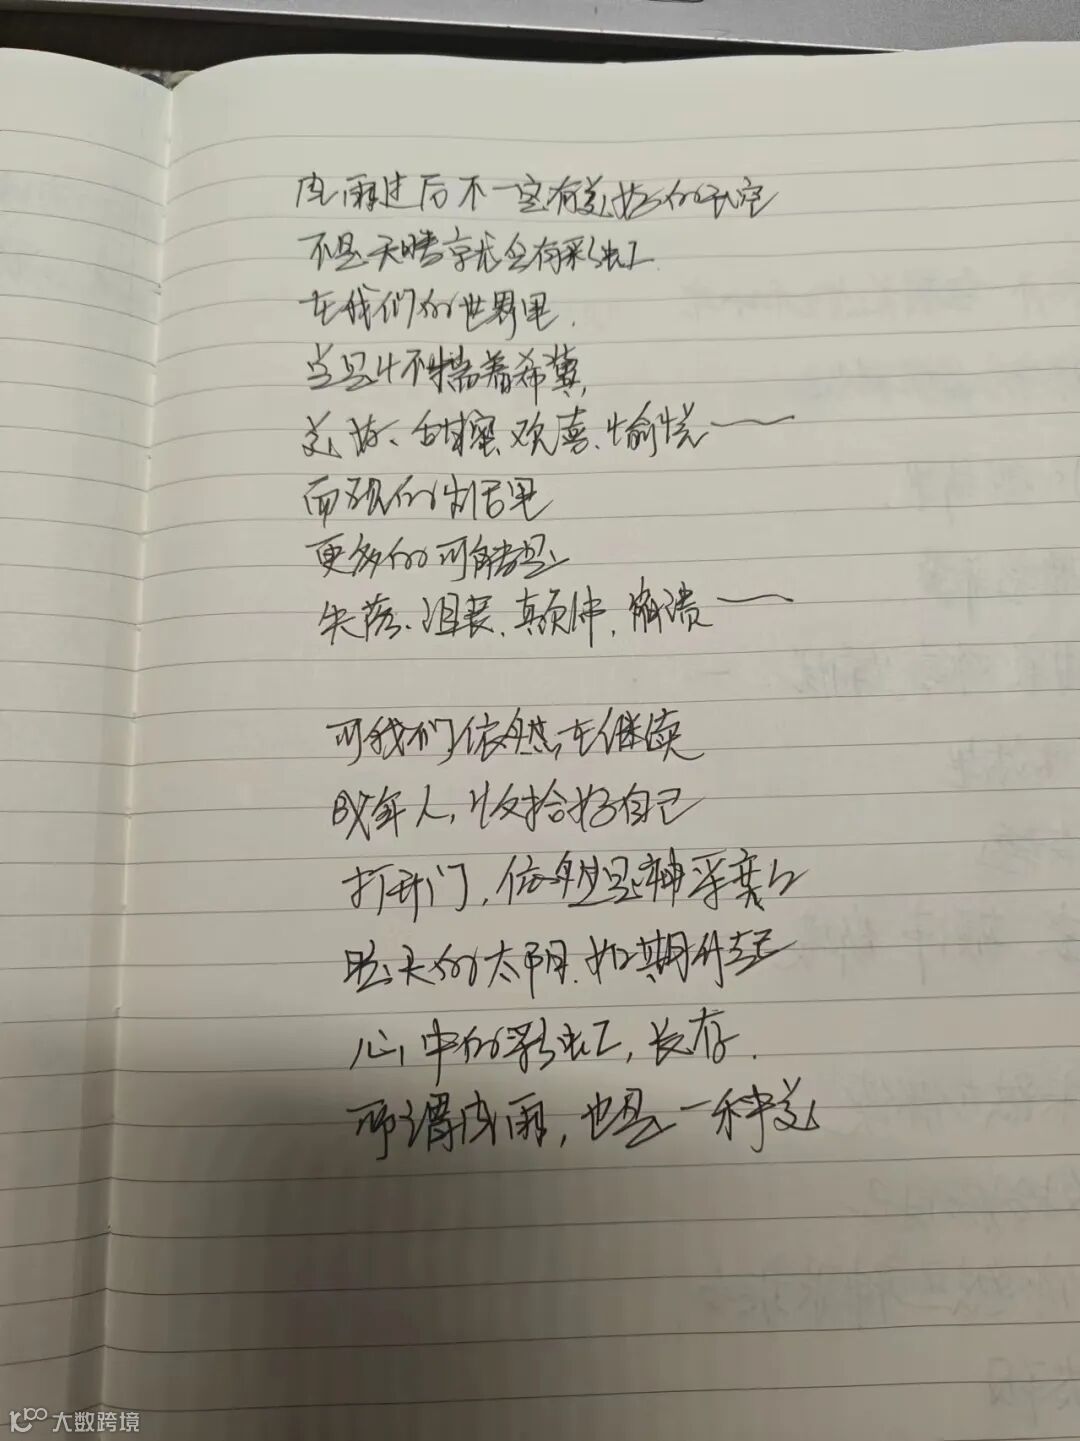 风雨过后不一定有美好的天空
不是天晴就会有彩虹
在我们的世界里
当是怀揣着希冀,
美好、甜蜜、欢喜、愉悦——
而现的生活里
更多的可能是
失落、沮丧、颠沛、崩溃——
可我们依然在继续
成年人,收拾好自己
打开门,依然是神采奕々
明天的太阳、如期升起
心中的彩虹,长存.
所谓风雨,也是一种美
大数跨境